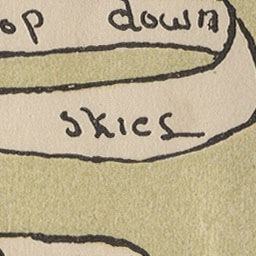 op down
skies